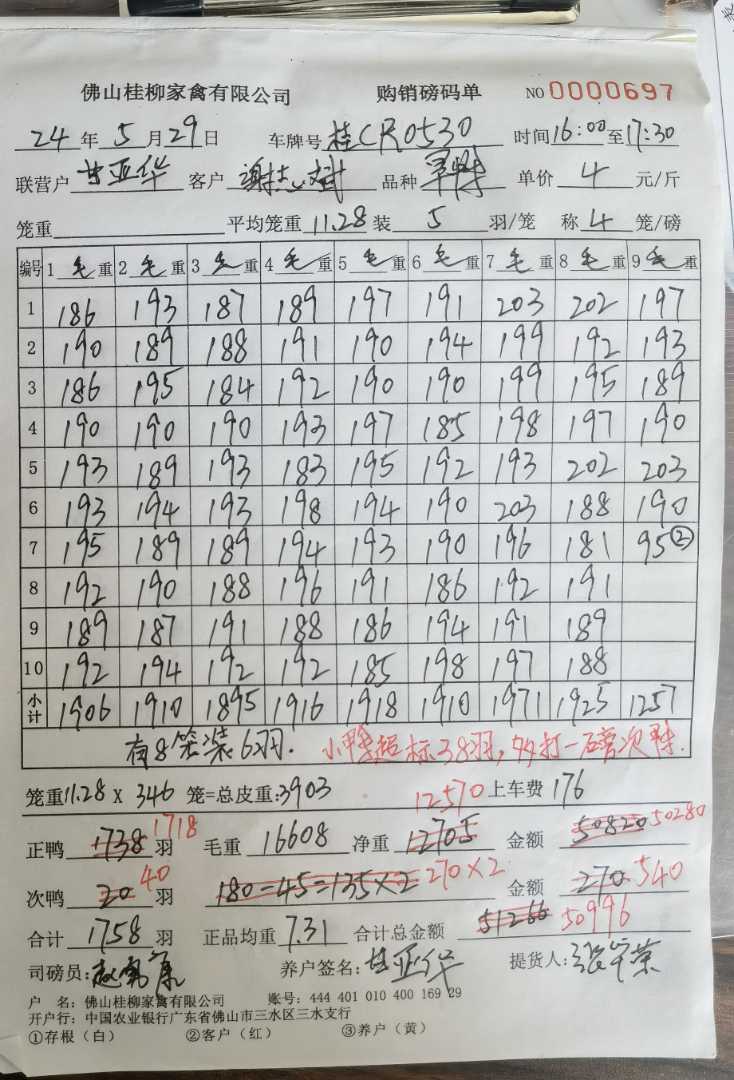 佛山桂柳家禽有限公司 购销磅码单 NO 0000697
24 年 5 月 29 日 车牌号 桂CR0530 时间 16:00 至 17:30
联营户 甘亚华 客户 谢杰斌 品种 单价 4 元/斤
笼重 平均笼重 11.28 装 5 羽/笼 称 4 笼/磅
编号 1 毛 重 2 毛 重 3 毛 重 4 毛 重 5 毛 重 6 毛 重 7 毛 重 8 毛 重 9 毛 重
1 186 193 187 189 197 191 203 202 197
2 190 189 188 191 190 194 199 192 193
3 186 195 184 192 190 190 199 195 189
4 190 190 190 193 197 185 198 197 190
5 193 189 193 183 195 192 193 202 203
6 193 194 193 198 194 190 203 188 190
7 195 189 189 194 193 190 196 181 95②
8 192 190 188 196 191 186 192 191
9 189 187 191 188 186 194 191 189
10 192 194 192 192 185 198 197 188
小计 1906 1910 1895 1916 1918 1910 1971 1925 1257
有8笼装6羽. 小鸭超标38羽, 多打一磅次鸭.
笼重 11.28 X 346 笼=总皮重: 3903 12570 上车费 176
正鸭 1738 1718 羽 毛重 16608 净重 12705 金额 50820 50280
次鸭 20 40 羽 180-45=135×2 270×2 金额 270 540
合计 1758 羽 正品均重 7.31 合计总金额 51266 50996
司磅员: 养户签名: 甘亚华 提货人:
户 名: 佛山桂柳家禽有限公司 账号: 444 401 010 400 169 29
开户行: 中国农业银行广东省佛山市三水区三水支行
①存根(白) ②客户(红) ③养户(黄)